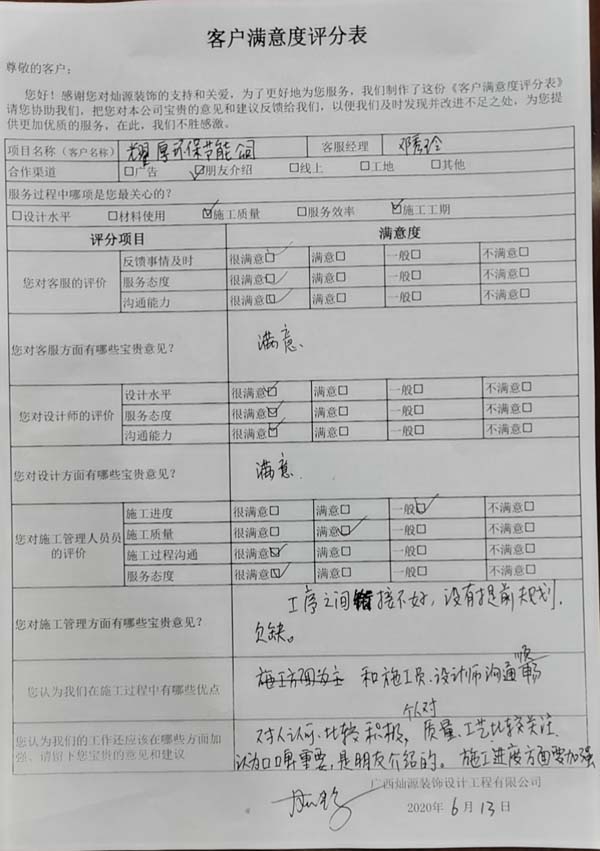 客户满意度评分表
尊敬的客户：
您好！感谢您对灿源装饰的支持和关爱，为了更好地为您服务，我们制作了这份《客户满意度评分表》
请您协助我们，把您对本公司宝贵的意见和建议反馈给我们，以便我们及时发现并改进不足之处，为您提
供更加优质的服务，在此，我们不胜感激。
项目名称（客户名称） 耀厚环保节能公司 客服经理
合作渠道 □广告 ☑朋友介绍 □线上 □工地 □其他
服务过程中哪项是您最关心的？
□设计水平 □材料使用 ☑施工质量 □服务效率 ☑施工工期
评分项目 满意度
您对客服的评价 反馈事情及时 很满意☑ 满意□ 一般□ 不满意□
服务态度 很满意☑ 满意□ 一般□ 不满意□
沟通能力 很满意☑ 满意□ 一般□ 不满意□
您对客服方面有哪些宝贵意见？ 满意.
您对设计师的评价 设计水平 很满意☑ 满意□ 一般□ 不满意□
服务态度 很满意☑ 满意□ 一般□ 不满意□
沟通能力 很满意☑ 满意□ 一般□ 不满意□
您对设计方面有哪些宝贵意见？ 满意.
您对施工管理人员员的评价 施工进度 很满意□ 满意□ 一般☑ 不满意□
施工质量 很满意□ 满意☑ 一般□ 不满意□
施工过程沟通 很满意☑ 满意□ 一般□ 不满意□
服务态度 很满意☑ 满意□ 一般□ 不满意□
您对施工管理方面有哪些宝贵意见？ 工序之间接不好，没有提前规划.
欠缺。
您认为我们在施工过程中有哪些优点 和施工员、设计师沟通顺畅
您认为我们的工作还应该在哪些方面加
强、请留下您宝贵的意见和建议
个人对
对人认可、比较积极，质量、工艺比较关注.
认为口啤重要，是朋友介绍的。施工进度方面要加强
广西灿源装饰设计工程有限公司
2020年6月13日